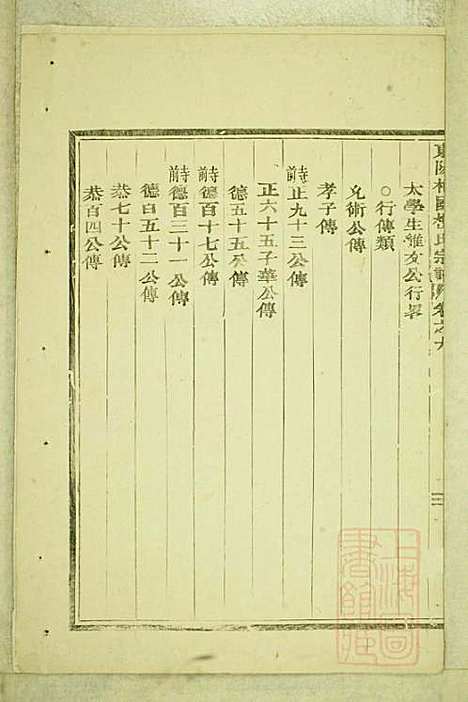 太學生雅友公行畧
○行傳類
允術公傳
孝子傳
寺前正九十三公傳
正六十五子華公傳
德五十五公傳
寺前德百十七公傳
寺前德百二十一公傳
德百五十二公傳
恭七十公傳
恭百四公傳
三
上海圖書館藏